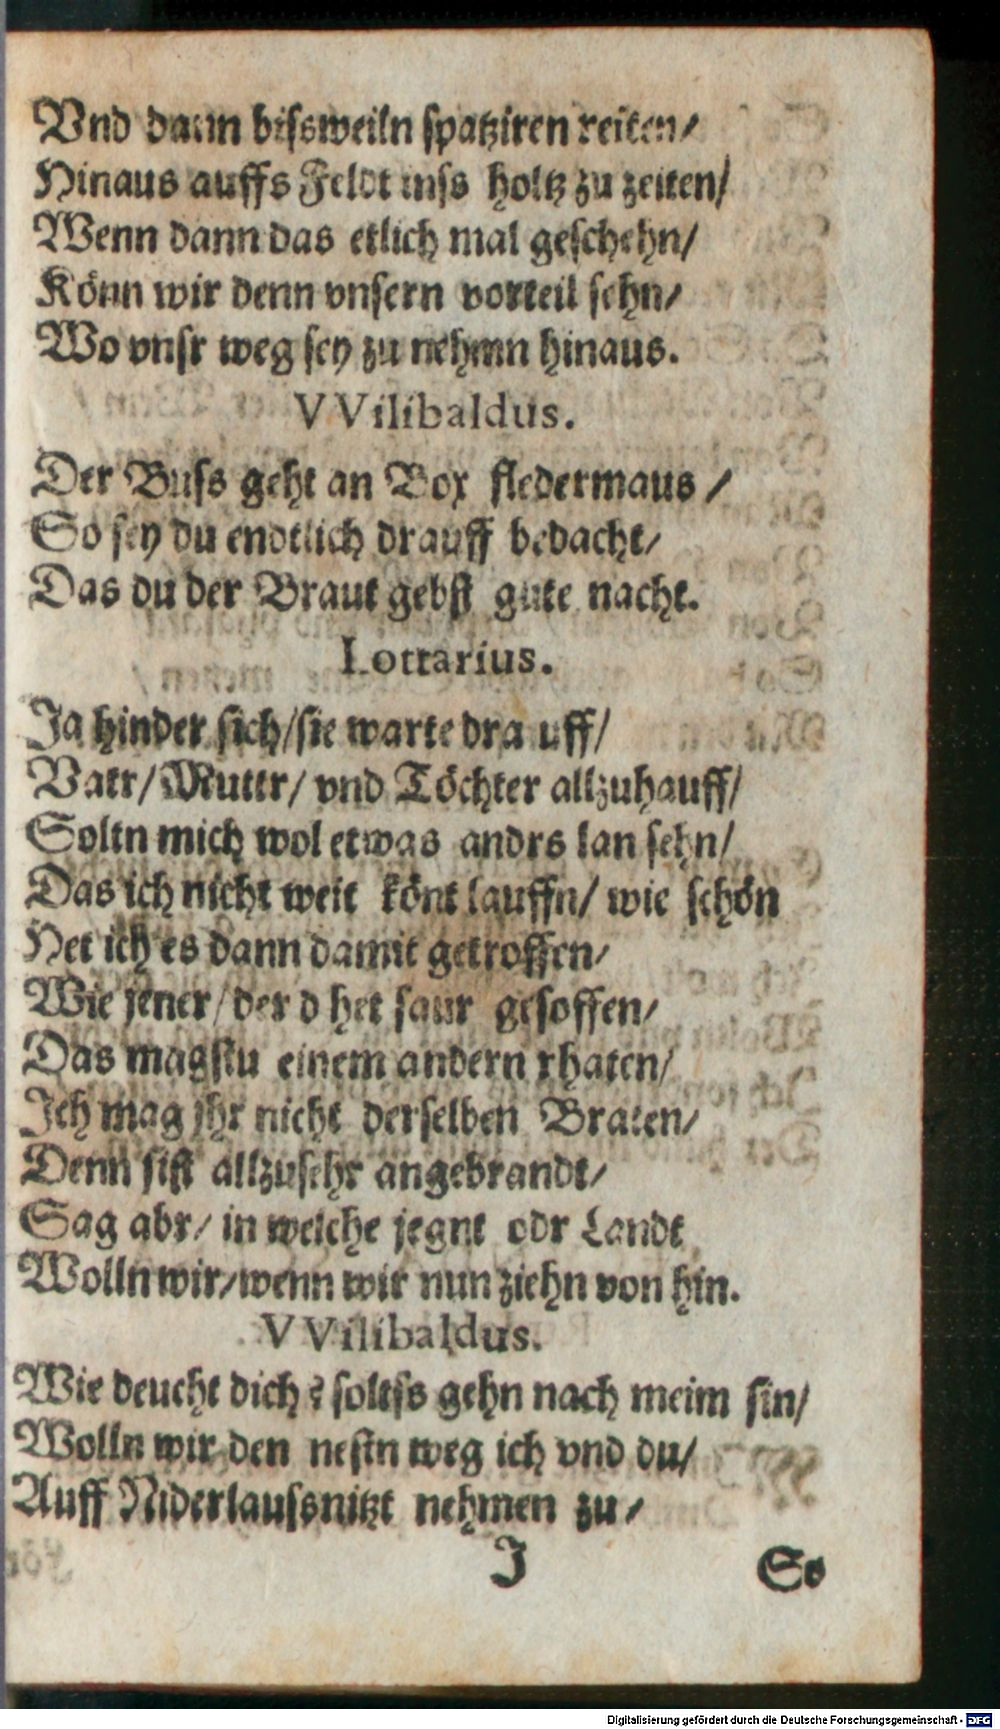 Vnd dann bissweiln spatziren reiten/
Hinaus auffs Feldt inss holtz zu zeiten/
Wenn dann das etlich mal geschehn/
Könn wir denn vnsern vorteil sehn/
Wo vnsr weg sey zu nehmn hinaus.
VVilibaldus.
Der Buss geht an Box fledermaus /
So sey du endtlich drauff bedacht/
Das du der Braut gebst gute nacht.
Lottarius.
Ja hinder sich/sie warte dra uff/
Vatr/ Muttr/ vnd Töchter allzuhauff/
Soltn mich wol etwas andrs lan sehn/
Das ich nicht weit könt lauffn/ wie schön
Het ich es dann damit getroffen/
Wie jener/der d het saur gesoffen/
Das magstu einem andern rhaten/
Ich mag jhr nicht derselben Braten/
Denn sist allzusehr angebrandt/
Sag abr/ in welche jegnt odr Landt
Wolln wir/wenn wir nun ziehn von hin.
VVilibaldus.
Wie deucht dich? soltss gehn nach meim sin/
Wolln wir den nestn weg ich vnd du/
Auff Niderlaussnitzt nehmen zu/
J So
Digitalisierung gefördert durch die Deutsche Forschungsgemeinschaft - DFG